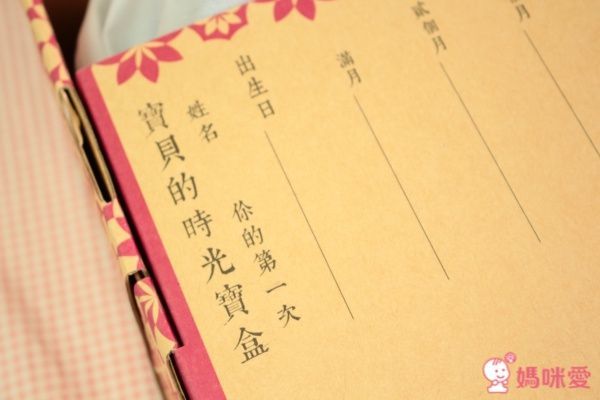 寶貝的時光寶盒
姓名
你的第一次
出生日
滿月
貳個月
月
媽咪愛